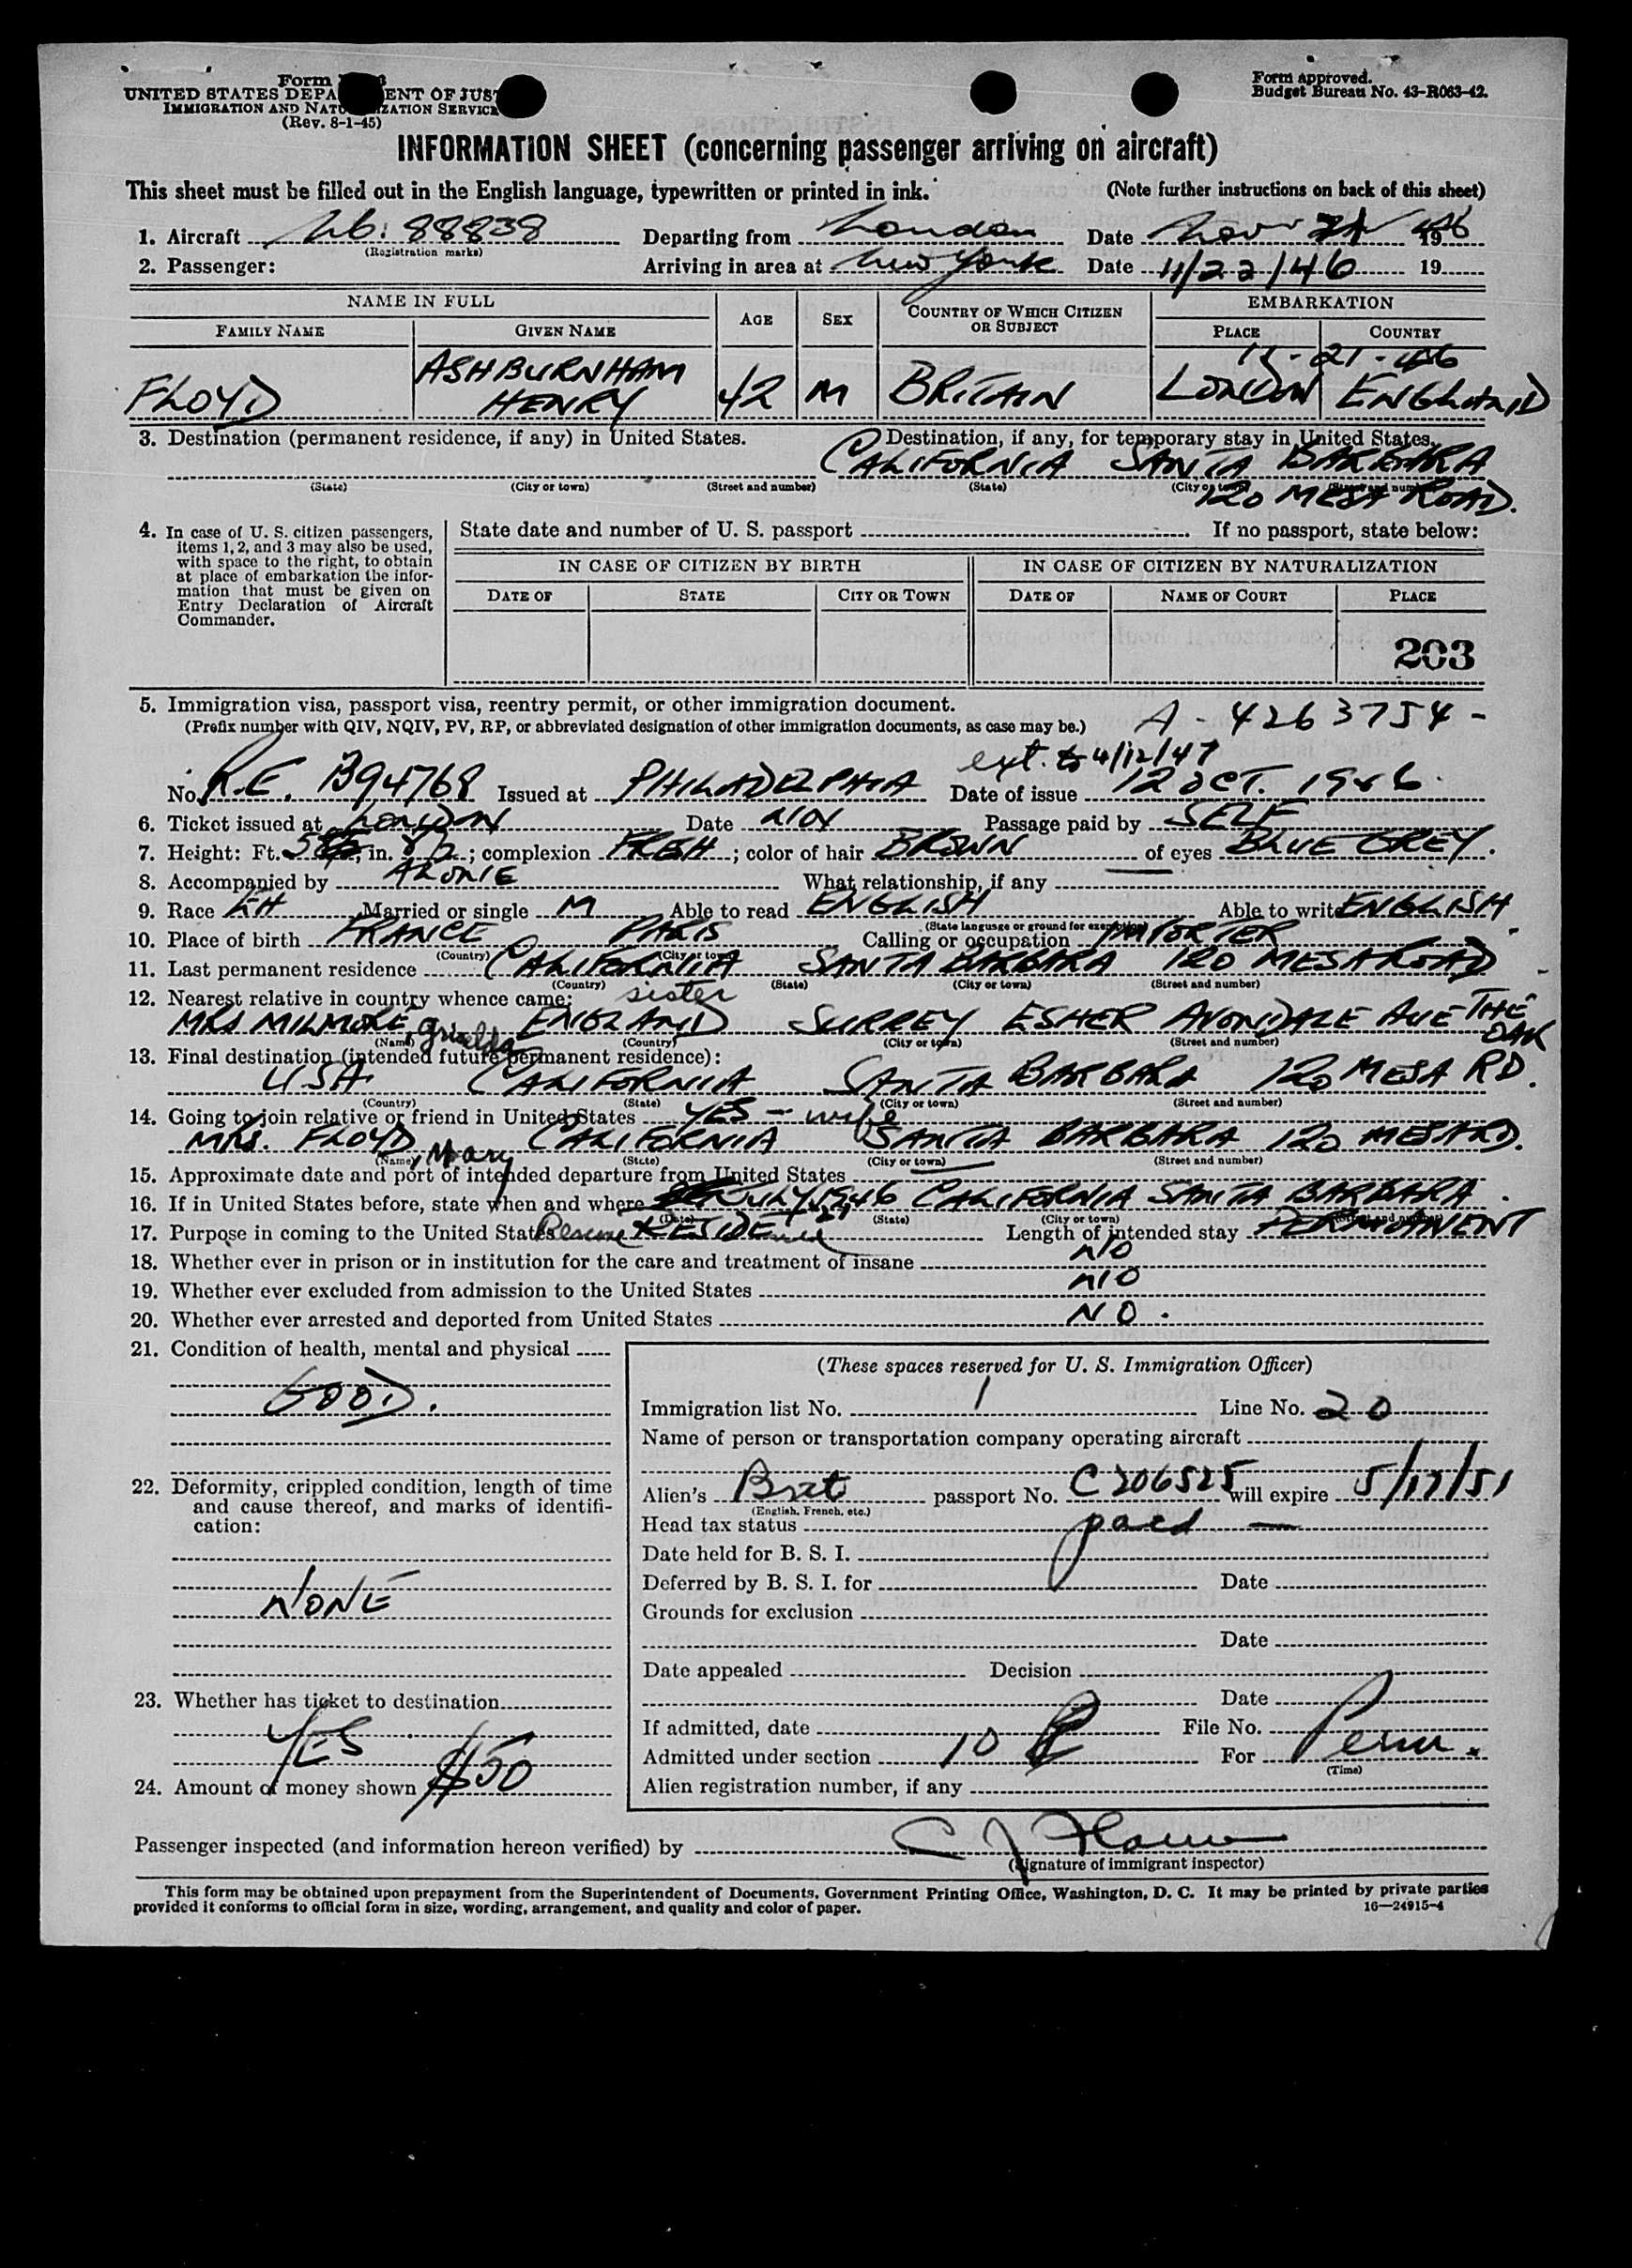 Form
UNITED STATES DEPA ENT OF JUS
IMMIGRATION AND NATU IZATION SERVICE
(Rev. 8-1-45)
Form approved.
Budget Bureau No. 43-R063-42.
INFORMATION SHEET (concerning passenger arriving on aircraft)
This sheet must be filled out in the English language, typewritten or printed in ink. (Note further instructions on back of this sheet)
1. Aircraft 88838 Departing from London Date Nov 21 1946
(Registration marks)
2. Passenger: Arriving in area at New York Date 11/22/46 19
NAME IN FULL AGE SEX COUNTRY OF WHICH CITIZEN OR SUBJECT EMBARKATION
FAMILY NAME GIVEN NAME PLACE COUNTRY
11-21-46
FLOYD ASHBURNHAM HENRY 42 M BRITAIN LONDON ENGLAND
3. Destination (permanent residence, if any) in United States. Destination, if any, for temporary stay in United States.
CALIFORNIA SANTA BARBARA
(State) (City or town) (Street and number) (State) (City or town) (Street and number)
120 MESA ROAD.
4. In case of U. S. citizen passengers, items 1, 2, and 3 may also be used, with space to the right, to obtain at place of embarkation the information that must be given on Entry Declaration of Aircraft Commander.
State date and number of U. S. passport If no passport, state below:
IN CASE OF CITIZEN BY BIRTH IN CASE OF CITIZEN BY NATURALIZATION
DATE OF STATE CITY OR TOWN DATE OF NAME OF COURT PLACE
203
5. Immigration visa, passport visa, reentry permit, or other immigration document.
(Prefix number with QIV, NQIV, PV, RP, or abbreviated designation of other immigration documents, as case may be.) A - 4263754 -
ext. to 4/12/47
No. R.E. B94768 Issued at PHILADELPHIA Date of issue 12 OCT. 1946.
6. Ticket issued at LONDON Date NOV Passage paid by SELF
7. Height: Ft. 5 in. 8 1/2; complexion FRESH; color of hair BROWN of eyes BLUE GREY.
8. Accompanied by ALONE What relationship, if any
9. Race EH Married or single M Able to read ENGLISH Able to write ENGLISH
(State language or ground for exemption)
10. Place of birth FRANCE PARIS Calling or occupation IMPORTER
(Country) (City or town)
11. Last permanent residence CALIFORNIA SANTA BARBARA 120 MESA ROAD
(Country) (State) (City or town) (Street and number)
12. Nearest relative in country whence came: sister
MRS MILMORE, Griselda ENGLAND SURREY ESHER AVONDALE AVE THE OAK
(Name) (Country) (City or town) (Street and number)
13. Final destination (intended future permanent residence):
USA CALIFORNIA SANTA BARBARA 120 MESA RD.
(Country) (State) (City or town) (Street and number)
14. Going to join relative or friend in United States YES - wife
MRS. FLOYD, Mary CALIFORNIA SANTA BARBARA 120 MESA RD.
(Name) (State) (City or town) (Street and number)
15. Approximate date and port of intended departure from United States
16. If in United States before, state when and where JULY 1946 CALIFORNIA SANTA BARBARA.
(Date) (State) (City or town) (Street and number)
17. Purpose in coming to the United States Resume RESIDENCE Length of intended stay PERMANENT
18. Whether ever in prison or in institution for the care and treatment of insane NO
19. Whether ever excluded from admission to the United States NO
20. Whether ever arrested and deported from United States NO.
21. Condition of health, mental and physical
GOOD.
22. Deformity, crippled condition, length of time and cause thereof, and marks of identification:
NONE
23. Whether has ticket to destination
YES
24. Amount of money shown $50
(These spaces reserved for U. S. Immigration Officer)
Immigration list No. 1 Line No. 20
Name of person or transportation company operating aircraft
Alien's Brit passport No. C206525 will expire 5/17/51
(English, French, etc.)
Head tax status paid —
Date held for B. S. I.
Deferred by B. S. I. for Date
Grounds for exclusion
Date
Date appealed Decision
Date
If admitted, date File No.
Admitted under section 10 For Perm.
(Time)
Alien registration number, if any
Passenger inspected (and information hereon verified) by
(Signature of immigrant inspector)
This form may be obtained upon prepayment from the Superintendent of Documents, Government Printing Office, Washington, D. C. It may be printed by private parties
provided it conforms to official form in size, wording, arrangement, and quality and color of paper. 16—24915-4